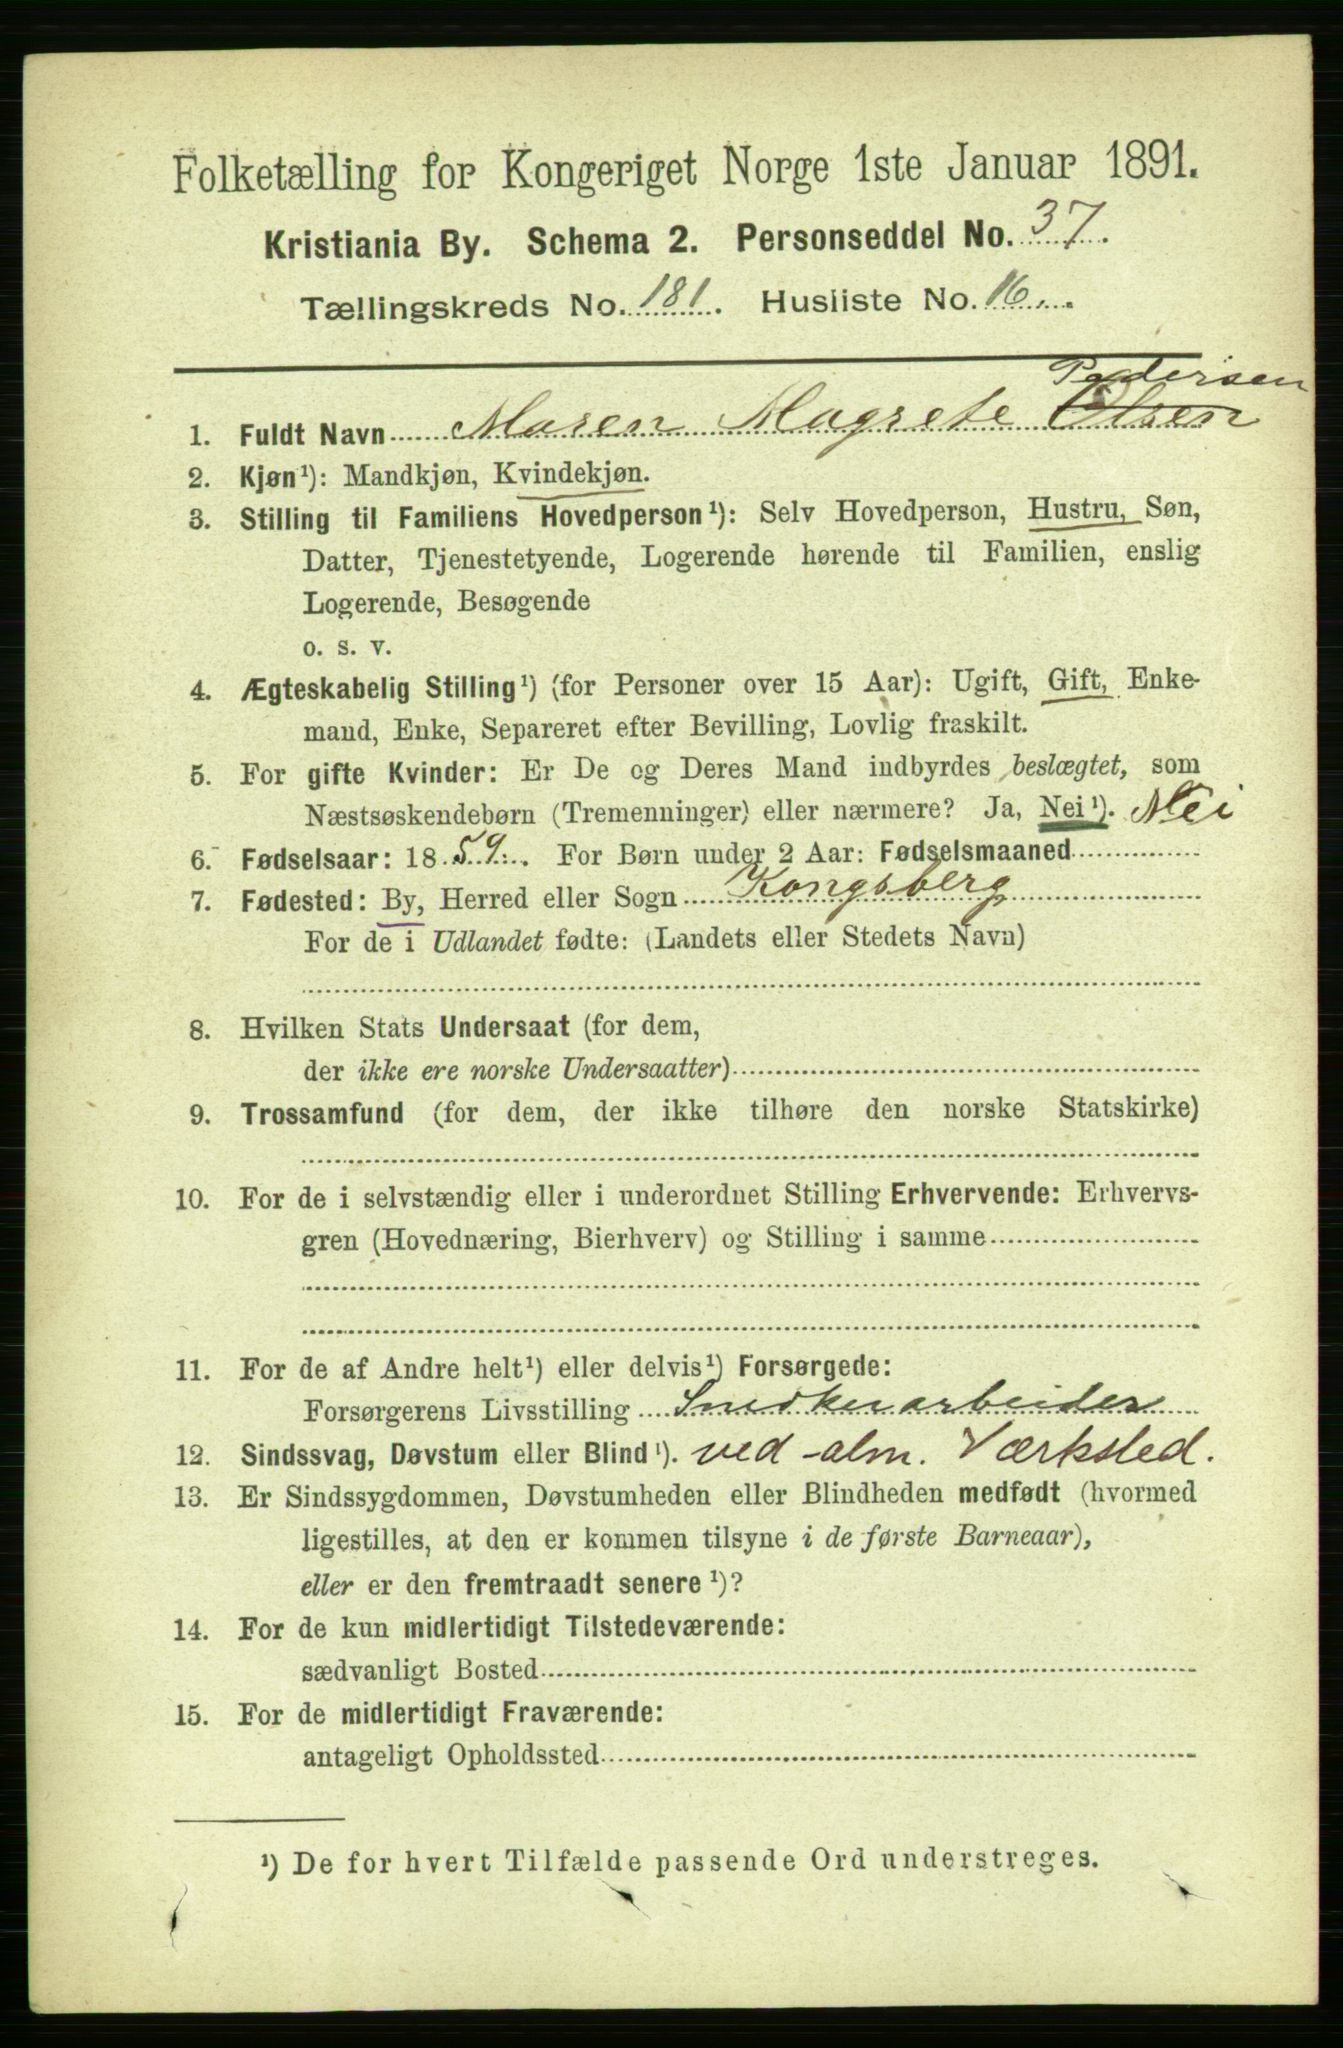 Folketælling for Kongeriget Norge 1ste Januar 1891.
Kristiania By. Schema 2. Personseddel No. 37.
Tællingskreds No. 181. Husliste No. 16.
Pedersen
1. Fuldt Navn Maren Magrete Olsen
2. Kjøn¹): Mandkjøn, Kvindekjøn.
3. Stilling til Familiens Hovedperson¹): Selv Hovedperson, Hustru, Søn,
Datter, Tjenestetyende, Logerende hørende til Familien, enslig
Logerende, Besøgende
o. s. v.
4. Ægteskabelig Stilling¹) (for Personer over 15 Aar): Ugift, Gift, Enke-
mand, Enke, Separeret efter Bevilling, Lovlig fraskilt.
5. For gifte Kvinder: Er De og Deres Mand indbyrdes beslægtet, som
Næstsøskendebørn (Tremenninger) eller nærmere? Ja, Nei¹). Nei
6. Fødselsaar: 1859. For Børn under 2 Aar: Fødselsmaaned
7. Fødested: By, Herred eller Sogn Kongsberg
For de i Udlandet fødte: (Landets eller Stedets Navn)
8. Hvilken Stats Undersaat (for dem,
der ikke ere norske Undersaatter)
9. Trossamfund (for dem, der ikke tilhøre den norske Statskirke)
10. For de i selvstændig eller i underordnet Stilling Erhvervende: Erhvervs-
gren (Hovednæring, Bierhverv) og Stilling i samme
11. For de af Andre helt¹) eller delvis¹) Forsørgede:
Forsørgerens Livsstilling Snedkerarbeider
12. Sindssvag, Døvstum eller Blind¹). ved alm. Værksted.
13. Er Sindssygdommen, Døvstumheden eller Blindheden medfødt (hvormed
ligestilles, at den er kommen tilsyne i de første Barneaar),
eller er den fremtraadt senere¹)?
14. For de kun midlertidigt Tilstedeværende:
sædvanligt Bosted
15. For de midlertidigt Fraværende:
antageligt Opholdssted
¹) De for hvert Tilfælde passende Ord understreges.